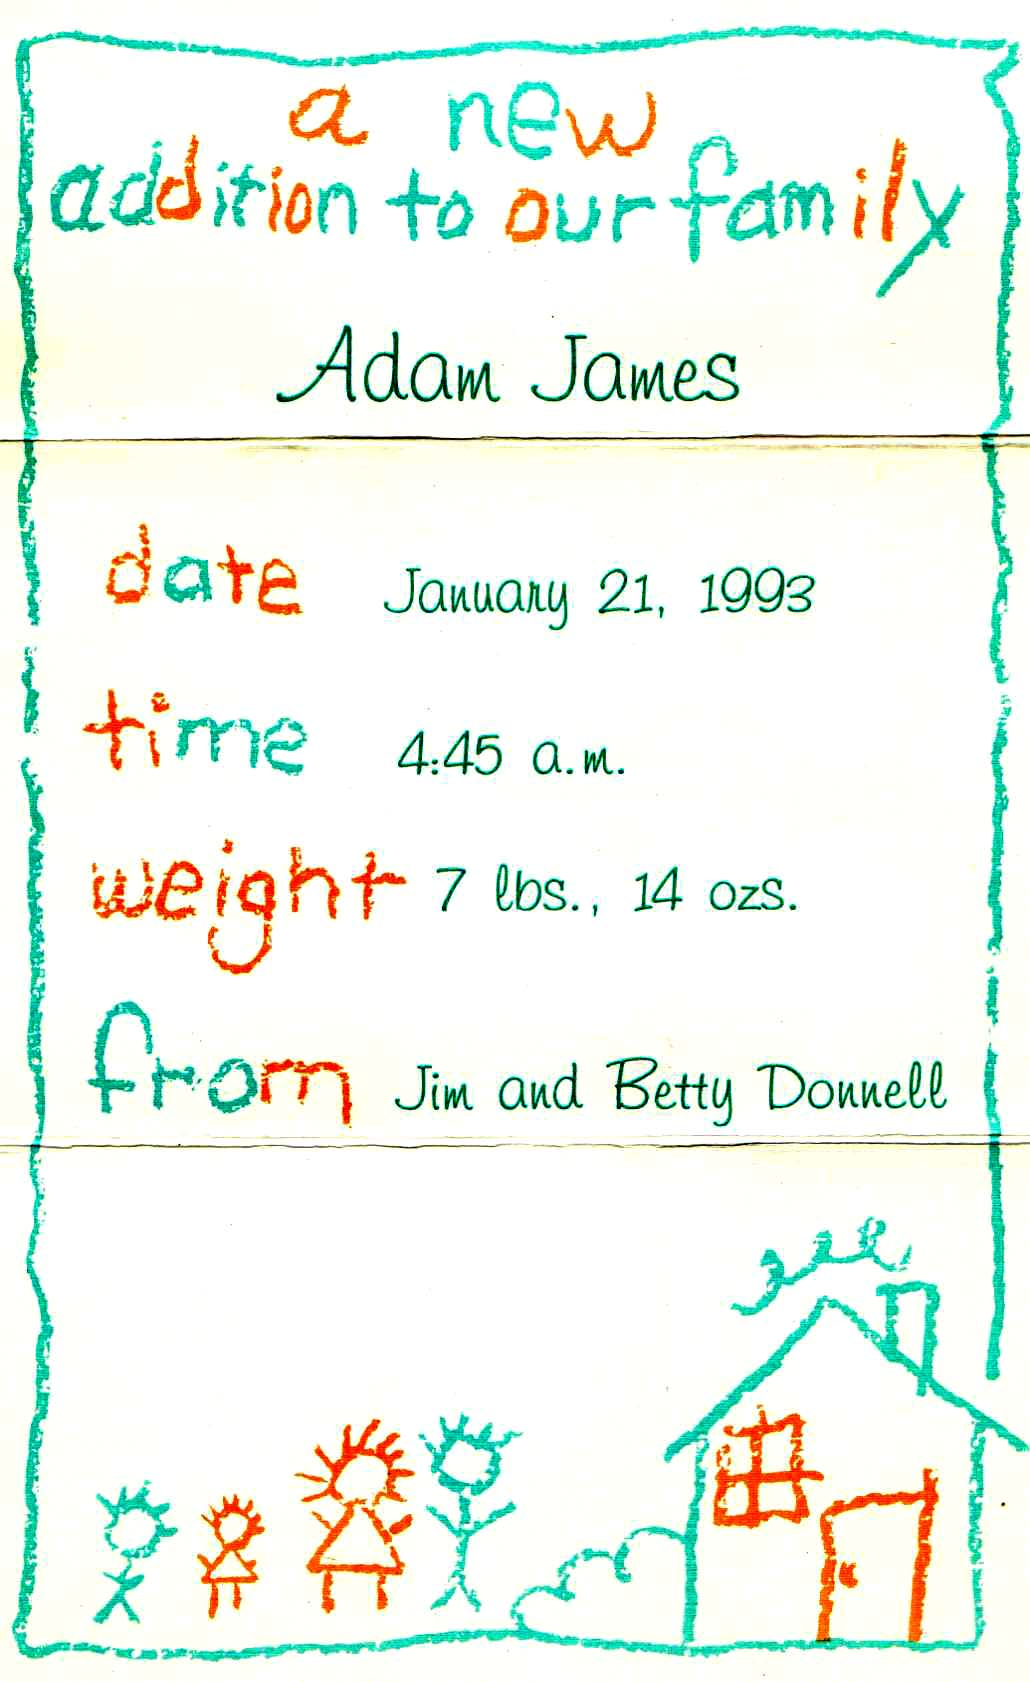 a new
addition to our family
Adam James
date January 21, 1993
time 4:45 a.m.
weight 7 lbs., 14 ozs.
from Jim and Betty Donnell